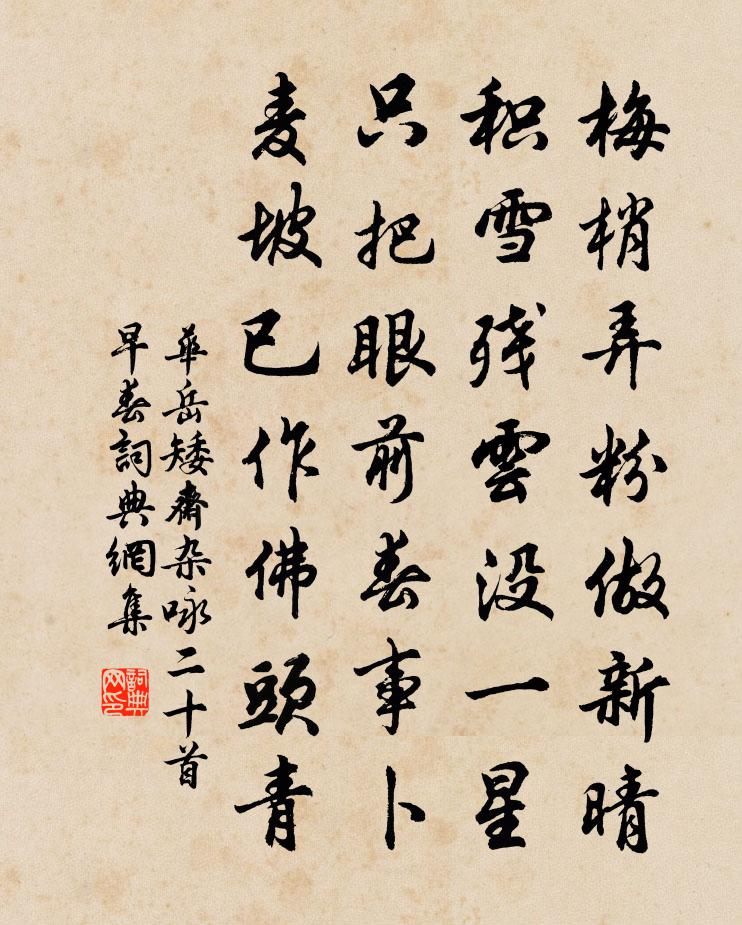 梅梢弄粉做新晴
积雪残雲没一星
只把眼前春事卜
麦坡已作佛頭青
華岳矮齋杂咏二十首
早春詞典網集
詞典
网印